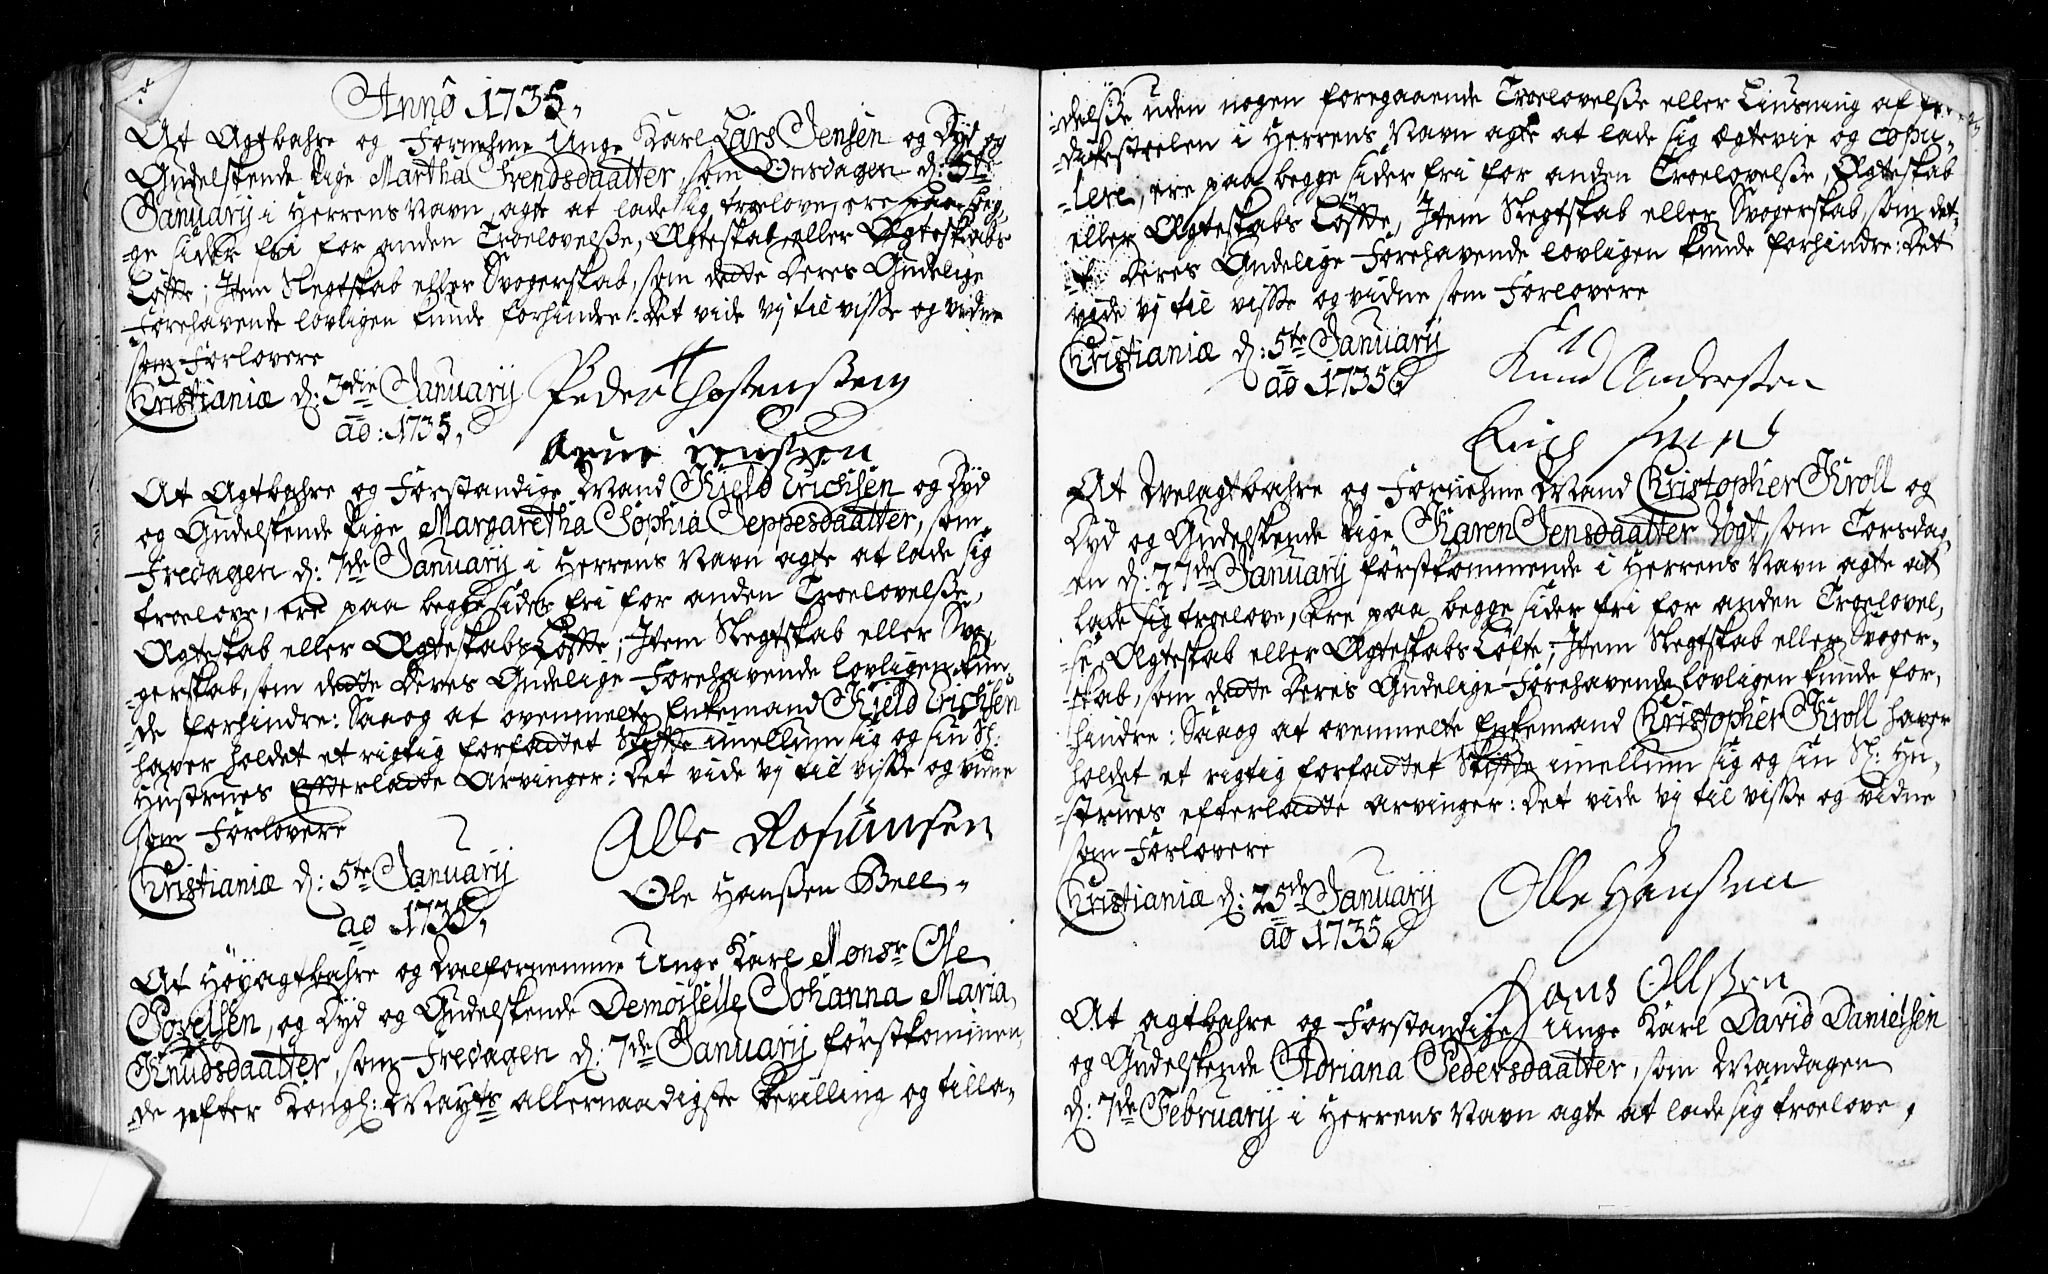 Anno 1735.
At Agtbahre og Fornehme Unge Karl Lars Jensen og Dyd og
Gudelskende Pige Martha Trendsdaatter, som Onsdagen d: 5te
Januarij i Herrens Navn, agte at lade sig troelove, ere paa beg-
-ge sider fri for anden Troelovelsse, Ægteskab eller Ægteskabs
Løffte; Item Slegtskab eller Svogerskab, som dette Deres Gudelige
Forehavende lovligen kunde forhindre: Det vide vj til visse og vidne
som Forlovere
Christianiæ d: 3die Januarij
ao: 1735.
Peder Thostenssen
Arne Jenssen
At Agtbahre og Forstandige Mand Kield Erichsen og Dyd
og Gudelskende Pige Margaretha Sophia Jeppesdaatter, som
Fredagen d: 7de Januarij i Herrens Navn agte at lade sig
troelove, ere paa begge sider fri for anden Troelovelsse,
Ægteskab eller Ægteskabs Løffte; Item Slegtskab eller Svo-
-gerskab, som dette Deres Gudelige Forehavende lovligen kun-
-de forhindre: Saaog at ovenmelte Enkemand Kield Erichsen
haver holdet et rigtig forfattet Skiffte imellum sig og sin Sl:
Hustrues Effterladte Arvinger: Det vide vj til visse og vidne
som Forlovere
Christianiæ d: 5te Januarij
ao 1735.
Olle
Ole Hanssen Bell
At Høyagtbahre og Velfornemme Unge Karl Monsr Ole
Povelsen, og Dyd og Gudelskende Demoiselle Johanna Maria
Knudsdaatter, som Fredagen d: 7de Januarij førstkommen-
-de efter Kongl: Mayts allernaadigste Bevilling og tilla-
-delsse uden nogen foregaaende Troelovelsse eller Liusning af
Prædikestoelen i Herrens Navn agte at lade sig ægtevie og copu-
-lere, ere paa begge sider fri for anden Troelovelsse, Ægteskab
eller Ægteskabs Løffte, Item Slegtskab eller Svogerskab, som det-
-te Deres Gudelige Forehavende lovligen kunde forhindre: Det
vide vj til visse og vidne som Forlovere
Christianiæ d: 5te Januarij
ao 1735.
Knud Anderssen
Erich
At Velagtbahre og Fornehme Mand Christopher Kroll og
Dyd og Gudelskende Pige Karen Jensdaatter Vogt, som Torsdag-
-en d: 27de Januarij førstkommende i Herrens Navn agte at
lade sig troelove, ere paa begge sider fri for anden Troelovel-
-se, Ægteskab eller Ægteskabs Løfte; Item Slegtskab eller Svoger-
-skab, som dette Deres Gudelige Forehavende lovligen kunde for-
-hindre: Saaog at ovenmelte Enkemand Christopher Kroll haver
holdet et rigtig forfattet Skiffte imellum sig og sin Sl: Hu-
-strues efterladte Arvinger: Det vide vj til visse og vidne
som Forlovere
Christianiæ d: 25de Januarij
ao 1735.
Olle Hanssen
Hans Ollssen
At agtbahre og Forstandige Unge Karl David Danielsen
og Gudelskende Adriana Pedersdaatter, som Mandagen
d: 7de Februarij i Herrens Navn agte at lade sig troelove,